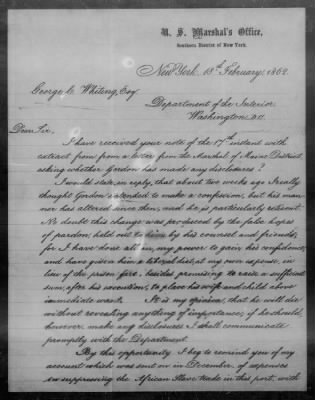 U. S. Marshal's Office,
Southern District of New York.
New York, 18th February, 1862
George C. Whiting, Esq
Department of the Interior
Washington
Dear Sir,
I have received your note of the 17th instant with
extract from from a letter from the Marshal of Maine District,
asking whether Gordon has made any disclosures?
I would state, in reply, that about two weeks ago I really
thought Gordon intended to make a confession, but his man-
ner has altered since then, and he is particularly reticent.
No doubt this change was produced by the false hopes
of pardon, held out to him by his counsel and friends,
for I have done all in my power to gain his confidence,
and have given him a liberal diet, at my own expense, in
lieu of the prison fare, besides promising to raise a sufficient
sum, after his execution, to place his wife and child above
immediate want. It is my opinion, that he will die
without revealing anything of importance; if he should,
however make any disclosures I shall communicate
promptly with the Department.
By this opportunity I beg to remind you of my
account which was sent on in December, of expenses
in suppressing the African Slave trade in this port, with